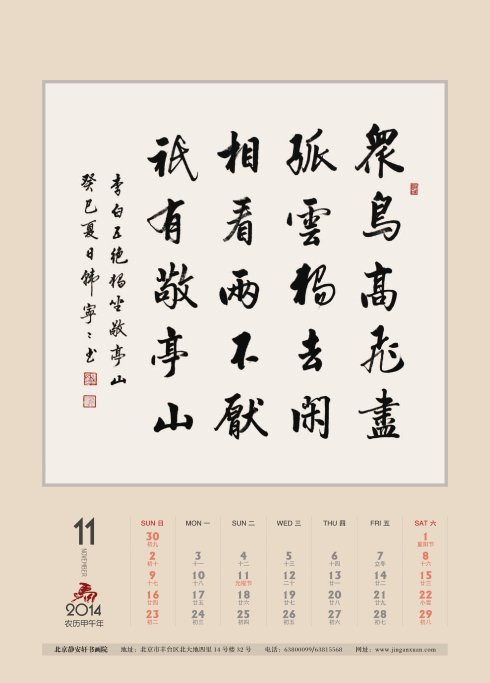 衆鳥高飛盡
孤雲獨去閑
相看兩不厭
祇有敬亭山
李白五绝獨坐敬亭山
癸巳夏日韩寧寧书
11
NOVEMBER
2014
农历甲午年
SUN 日 MON 一 SUN 二 WED 三 THU 四 FRI 五 SAT 六
30 1
初九 重阳节
2 3 4 5 6 7 8
初十 十一 十二 十三 十四 立冬 十六
9 10 11 12 13 14 15
十七 十八 光棍节 二十 廿一 廿二 廿三
16 17 18 19 20 21 22
廿四 廿五 廿六 廿七 廿八 廿九 小雪
23 24 25 26 27 28 29
初二 初三 初四 初五 初六 初七 初八
北京静安轩书画院 地址：北京市丰台区北大地四里14号楼32号 电话：63800099/63815568 网址：www.jinganxuan.com